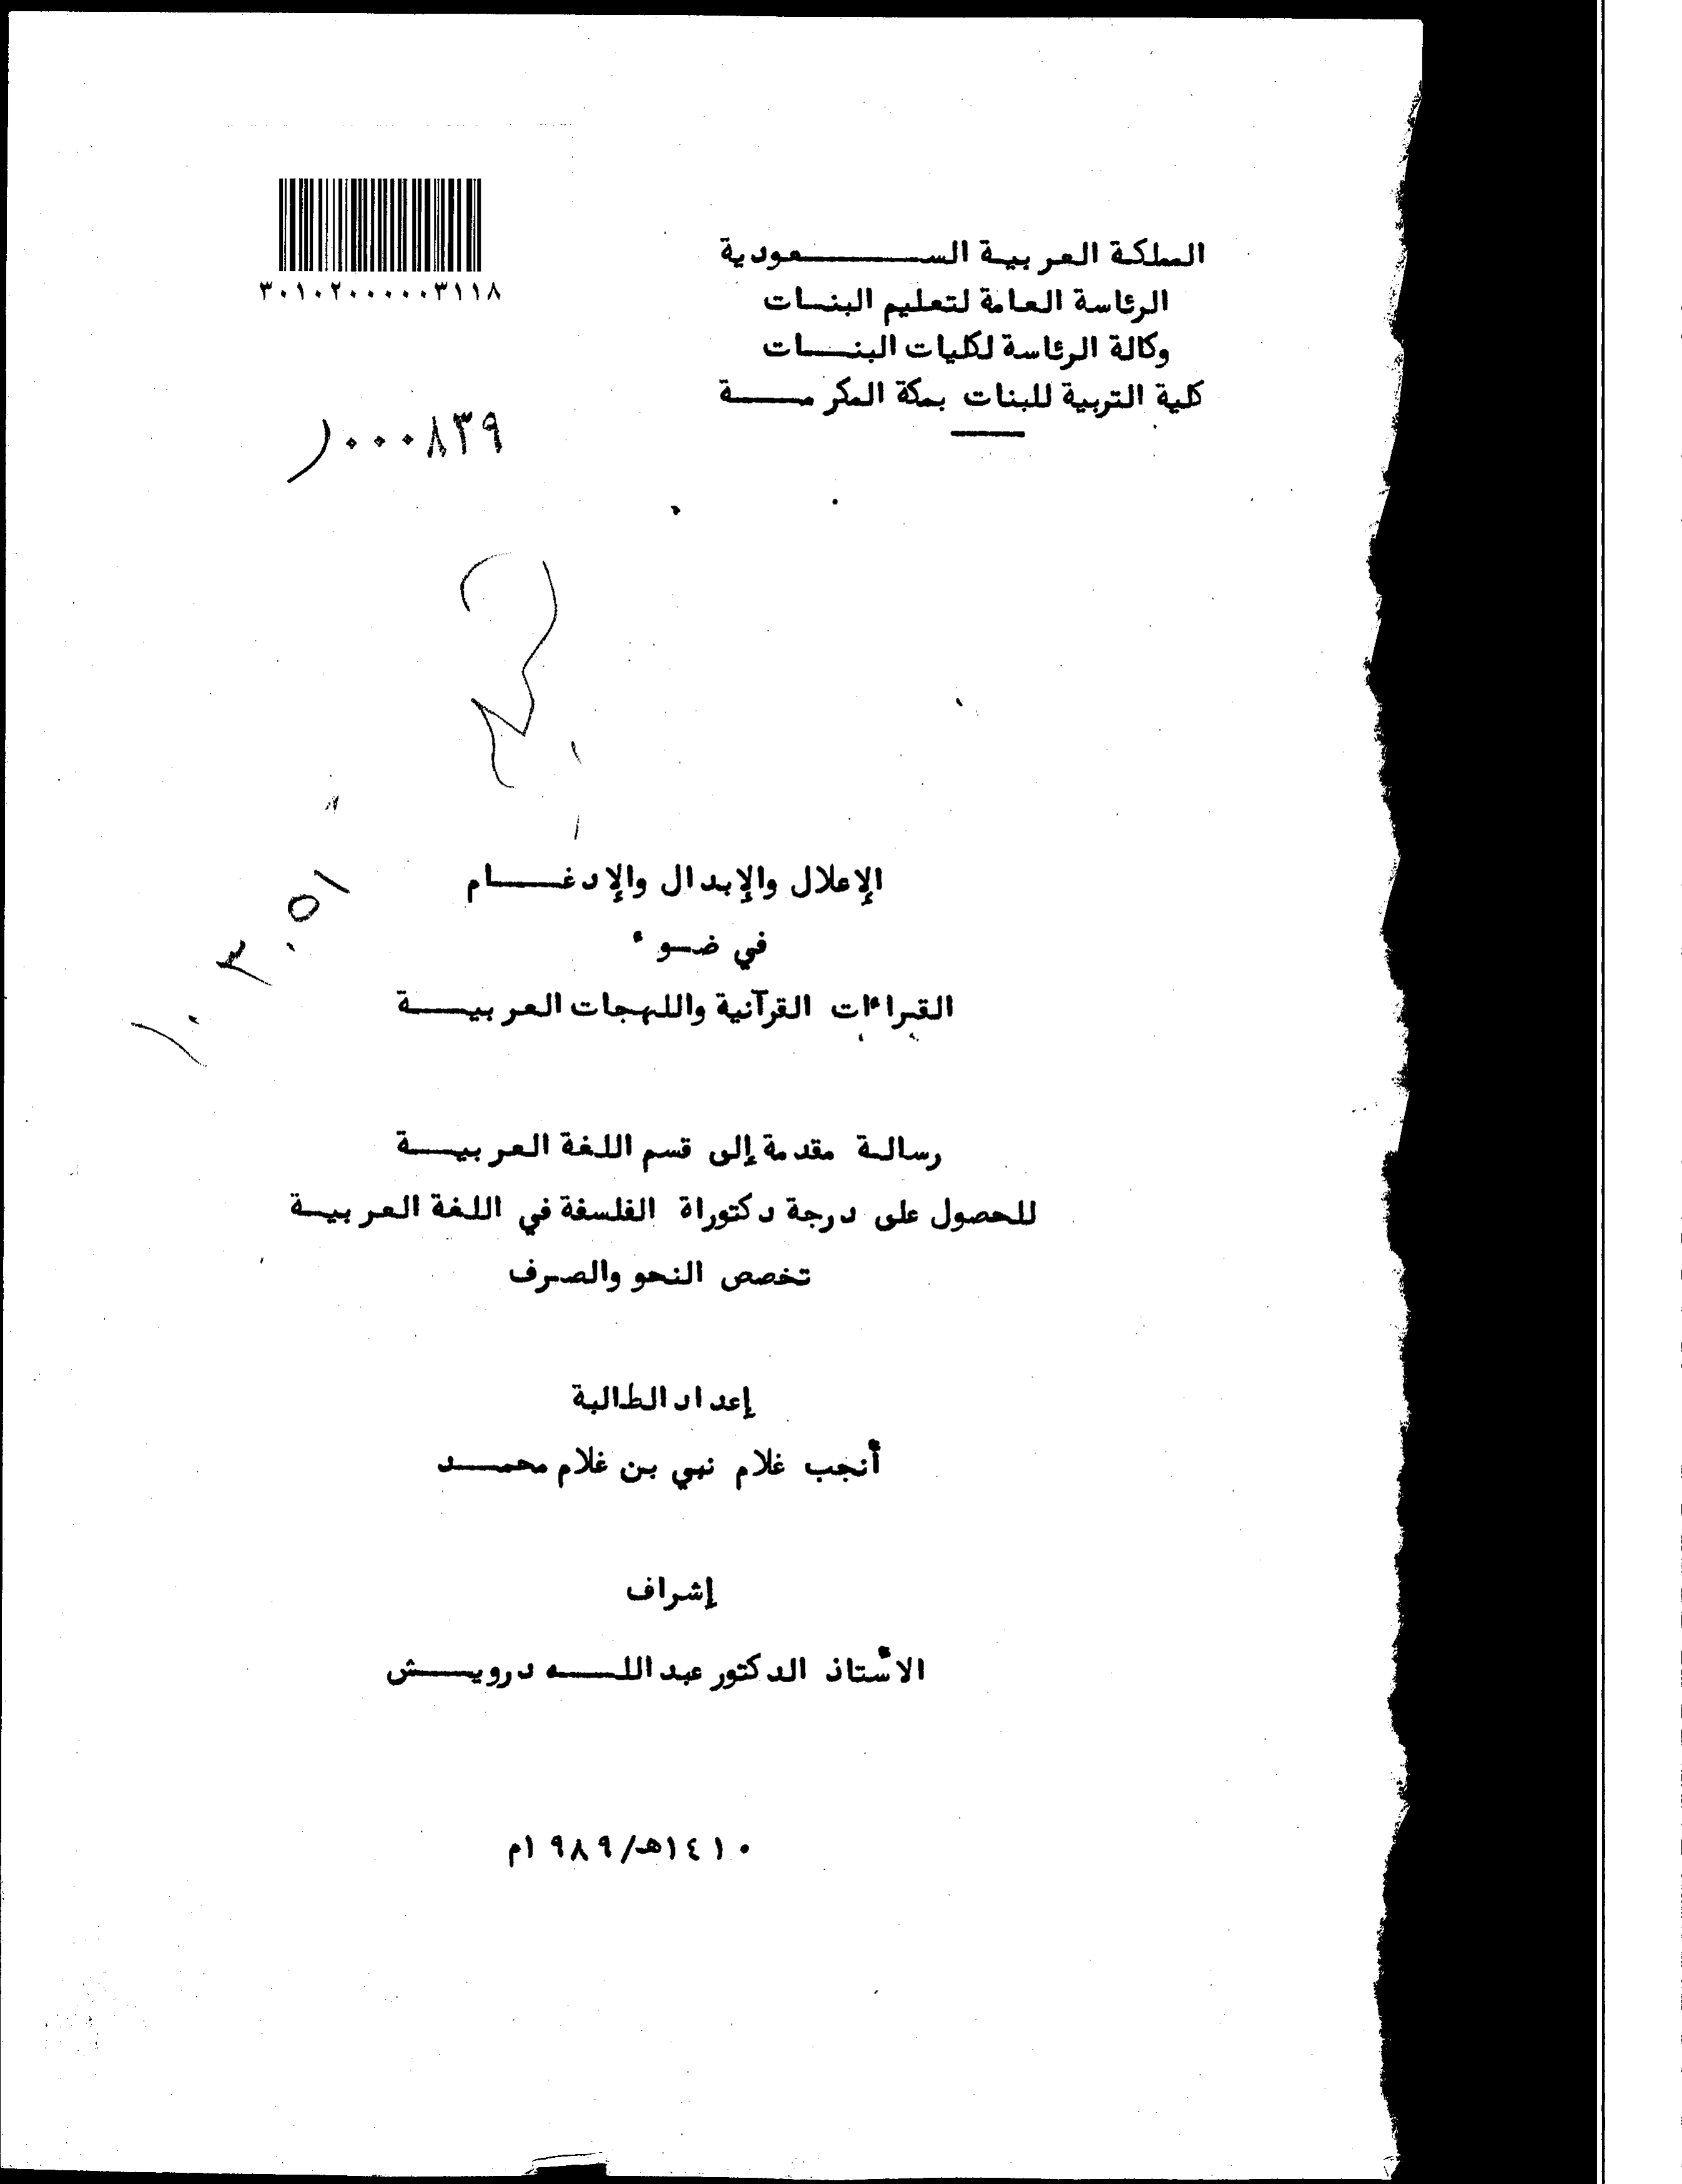 المملكة العربية السعودية
الرئاسة العامة لتعليم البنات
وكالة الرئاسة لكليات البنات
كلية التربية للبنات بمكة المكرمة
٣٠١٠٢٠٠٠٠٠٣١١٨
٠٠٠٨٣٩
الإعلال والإبدال والإدغام
في ضوء
القراءات القرآنية واللهجات العربية
رسالة مقدمة إلى قسم اللغة العربية
للحصول على درجة دكتوراة الفلسفة في اللغة العربية
تخصص النحو والصرف
إعداد الطالبة
أنجب غلام نبي بن غلام محمد
إشراف
الأستاذ الدكتور عبد الله درويش
١٤١٠هـ/١٩٨٩م